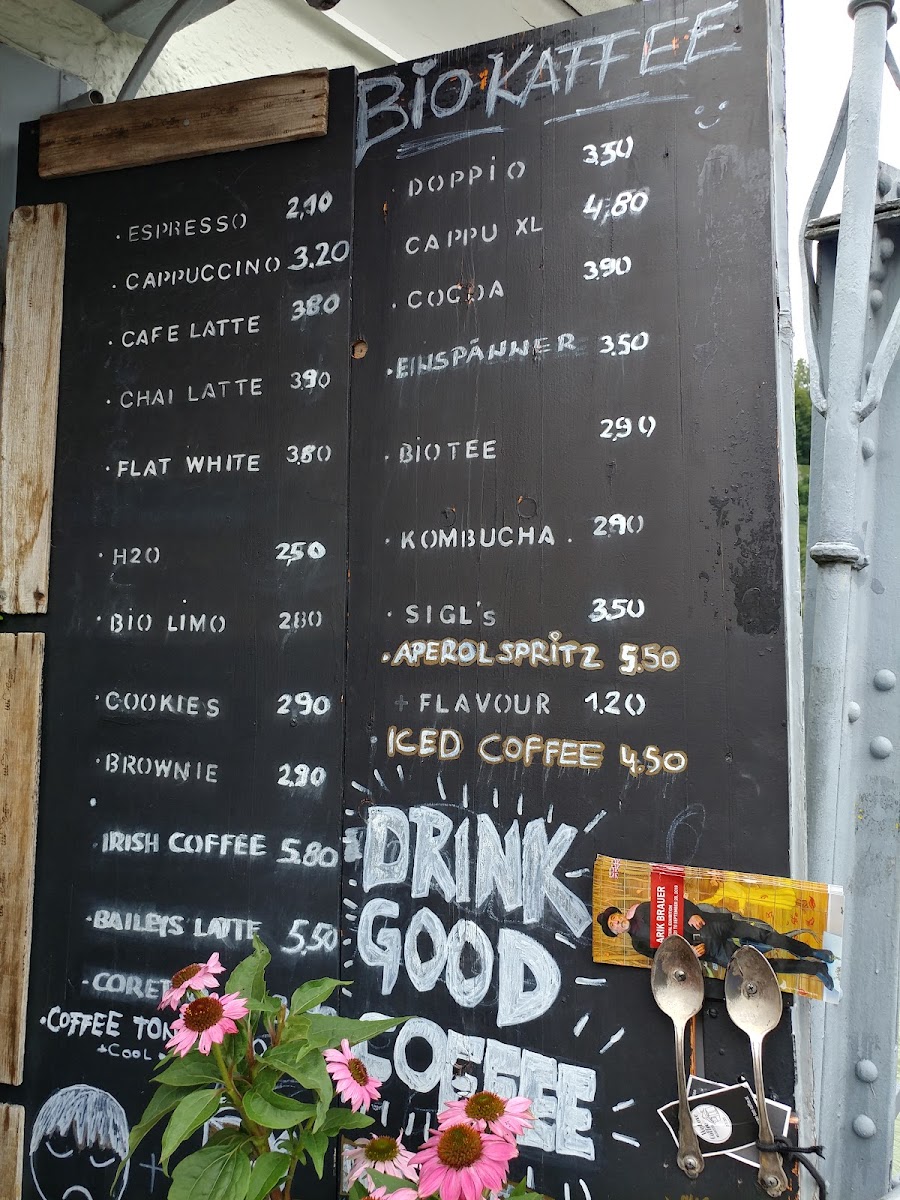 BIO KAFFEE
ESPRESSO
CAPPUCCINO 3.20
CAFE LATTE 3.80
CHAI LATTE 3.90
FLAT WHITE 3.80
H2O 2,50
BIO LIMO 2.80
COOKIES 2.90
BROWNIE 2.90
IRISH COFFEE 5.80
BAILEYS LATTE 5,50
COFFEE
+COOL
DOPPIO 3.50
CAPPU XL 4,80
COCOA 3.90
EINSPÄNNER 3.50
BIOTEE 2.90
KOMBUCHA 2.90
SIGL's 3.50
APEROL SPRITZ 5.50
+ FLAVOUR 1.20
ICED COFFEE 4.50
DRINK
GOOD
COFFEE
ARIK BRAUER